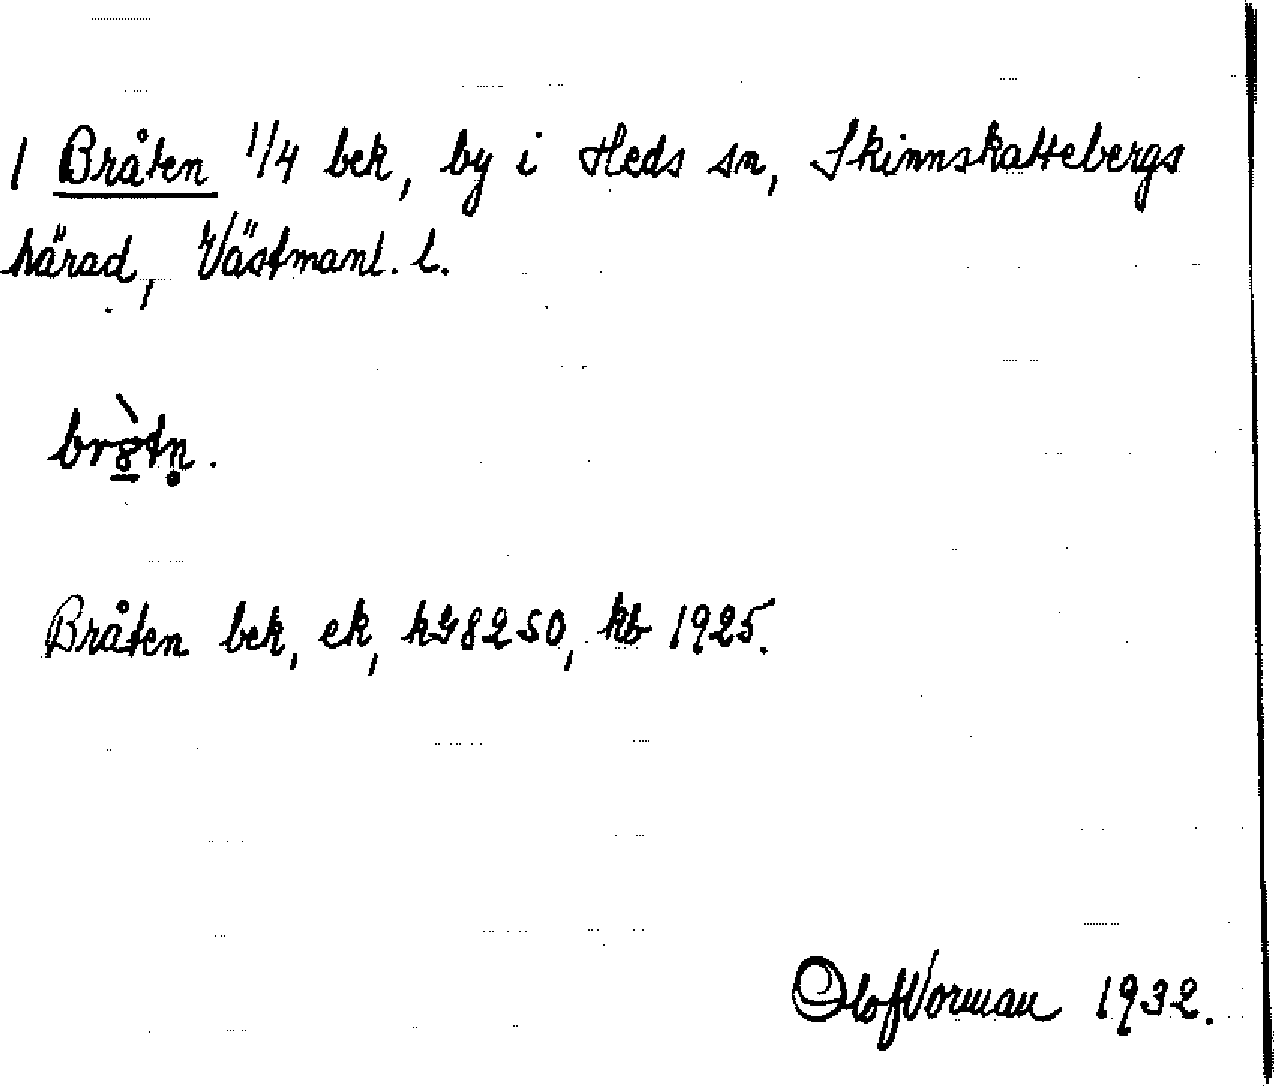 1 Bråten 1/4 bek, by i Heds sn, Skinnskattebergs
härad, Västmanl. l.
Bråten bek, ek, kJ 8250, kb 1925.
Olof Vorman 1932.